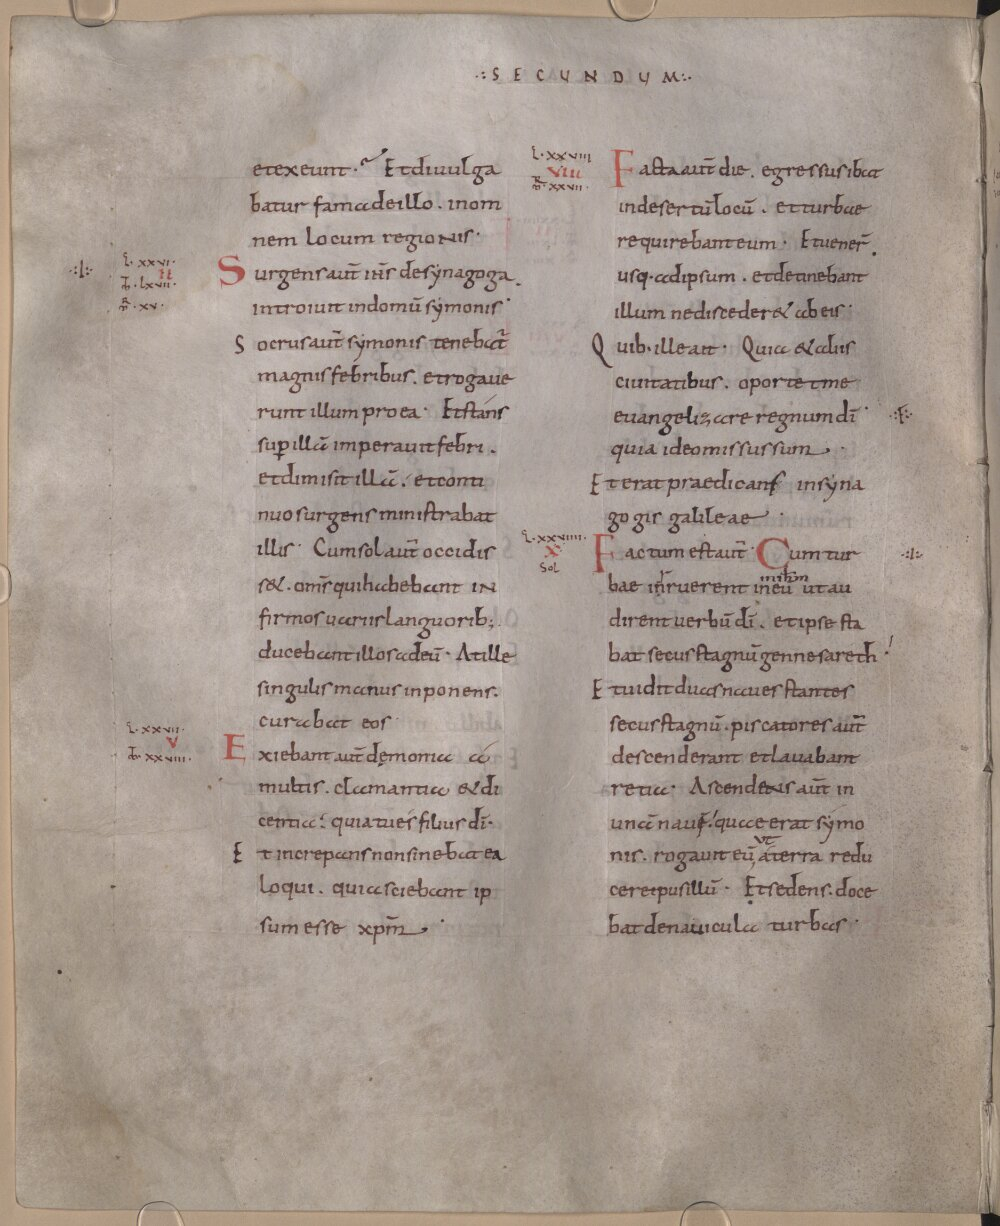 ·:SECUNDUM:·
et exeunt · Et diuulga
batur fama de illo . in om
nem locum regionis ·
·:I:·
L·xxvi·
II
IO·Lxvii·
M̄·xv·
Surgens aut̄ ih̄s de synagoga .
introiuit in domū symonis ·
Socrus aut̄ symonis tenebat̄
magnis febribus . et rogaue
runt illum pro ea · Et stans
sup̱ illā imperauit febri .
et dimisit illā . et conti
nuo surgens ministrabat
illis · Cum sol aut̄ occidis
s& . om̄s qui habebant in
firmos uariis languorib;
ducebant illos ad eū · At ille
singulis manus inponens .
curabat eos
L·xxvii·
V
xxviii·
Exiebant aut̄ dęmonia a
multis . clamantia & di
centia : quia tu es filius dī ·
Et increpans non sinebat ea
loqui . quia sciebant ip
sum esse xp̄m ·
L·xxviii
VIII
M̄·xxvii·
Facta aut̄ die . egressus ibat
in desertū locū . et turbae
requirebant eum · Et uener̄ .
usq· ad ipsum . et detinebant
illum ne disceder& ab eis ·
Quib· ille ait · Quia & aliis
ciuitatibus . oportet me
euangelizare regnum dī ·F·
quia ideo missus sum ·
Et erat praedicans in syna
gogis galileae ·
L·xxviiii·
X
Sol
Factum est aut̄ · Cum tur ·I·
bae inruerent in eū ut au
dirent uerbū dī . et ipse sta
bat secus stagnū gennesareth
Et uidit duas naues stantes
secus stagnū . piscatores aut̄
descenderant et lauabant
retia · Ascendens aut̄ in
unā nauē . quae erat symo
ut
nis . rogauit eū a terra redu
cere ipusillū · Et sedens . doce
bat de nauicula turbas ·